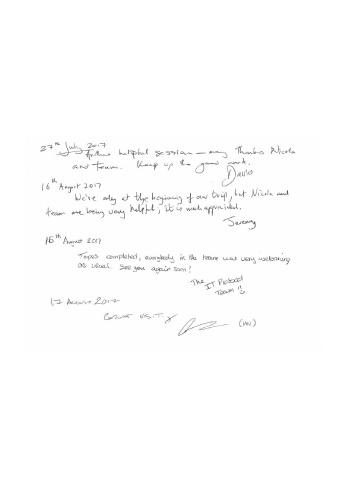 27th July 2017
Another helpful session – many Thanks Nicola
and team. Keep up the good work.
David
16th August 2017
We're only at the beginning of our trip, but Nicola and
team are being very helpful, it is much appreciated.
Jeremy
16th August 2017
Tapes completed, everybody in the team was very welcoming
as usual. See you again soon!
The
IT
Team
17 August 2017